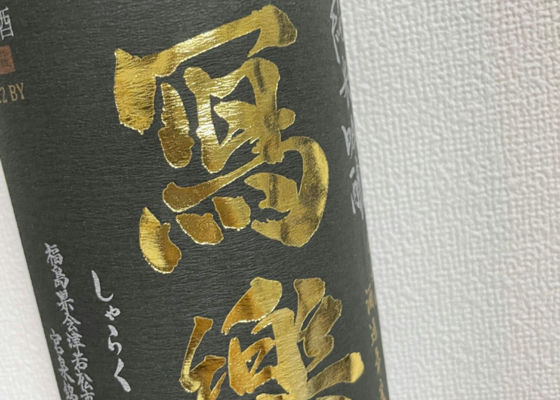 純米吟醸
寫樂
しゃらく
福島県会津若松市
宮泉銘
酒
2 BY